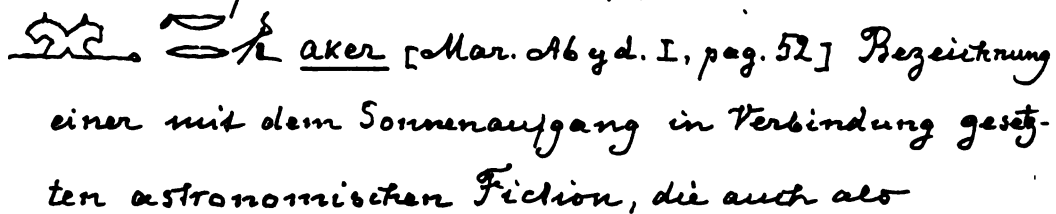 aker [Mar. Abyd. I, pag. 52] Bezeichnung
einer mit dem Sonnenaufgang in Verbindung gesetz-
ten astronomischen Fiction, die auch als